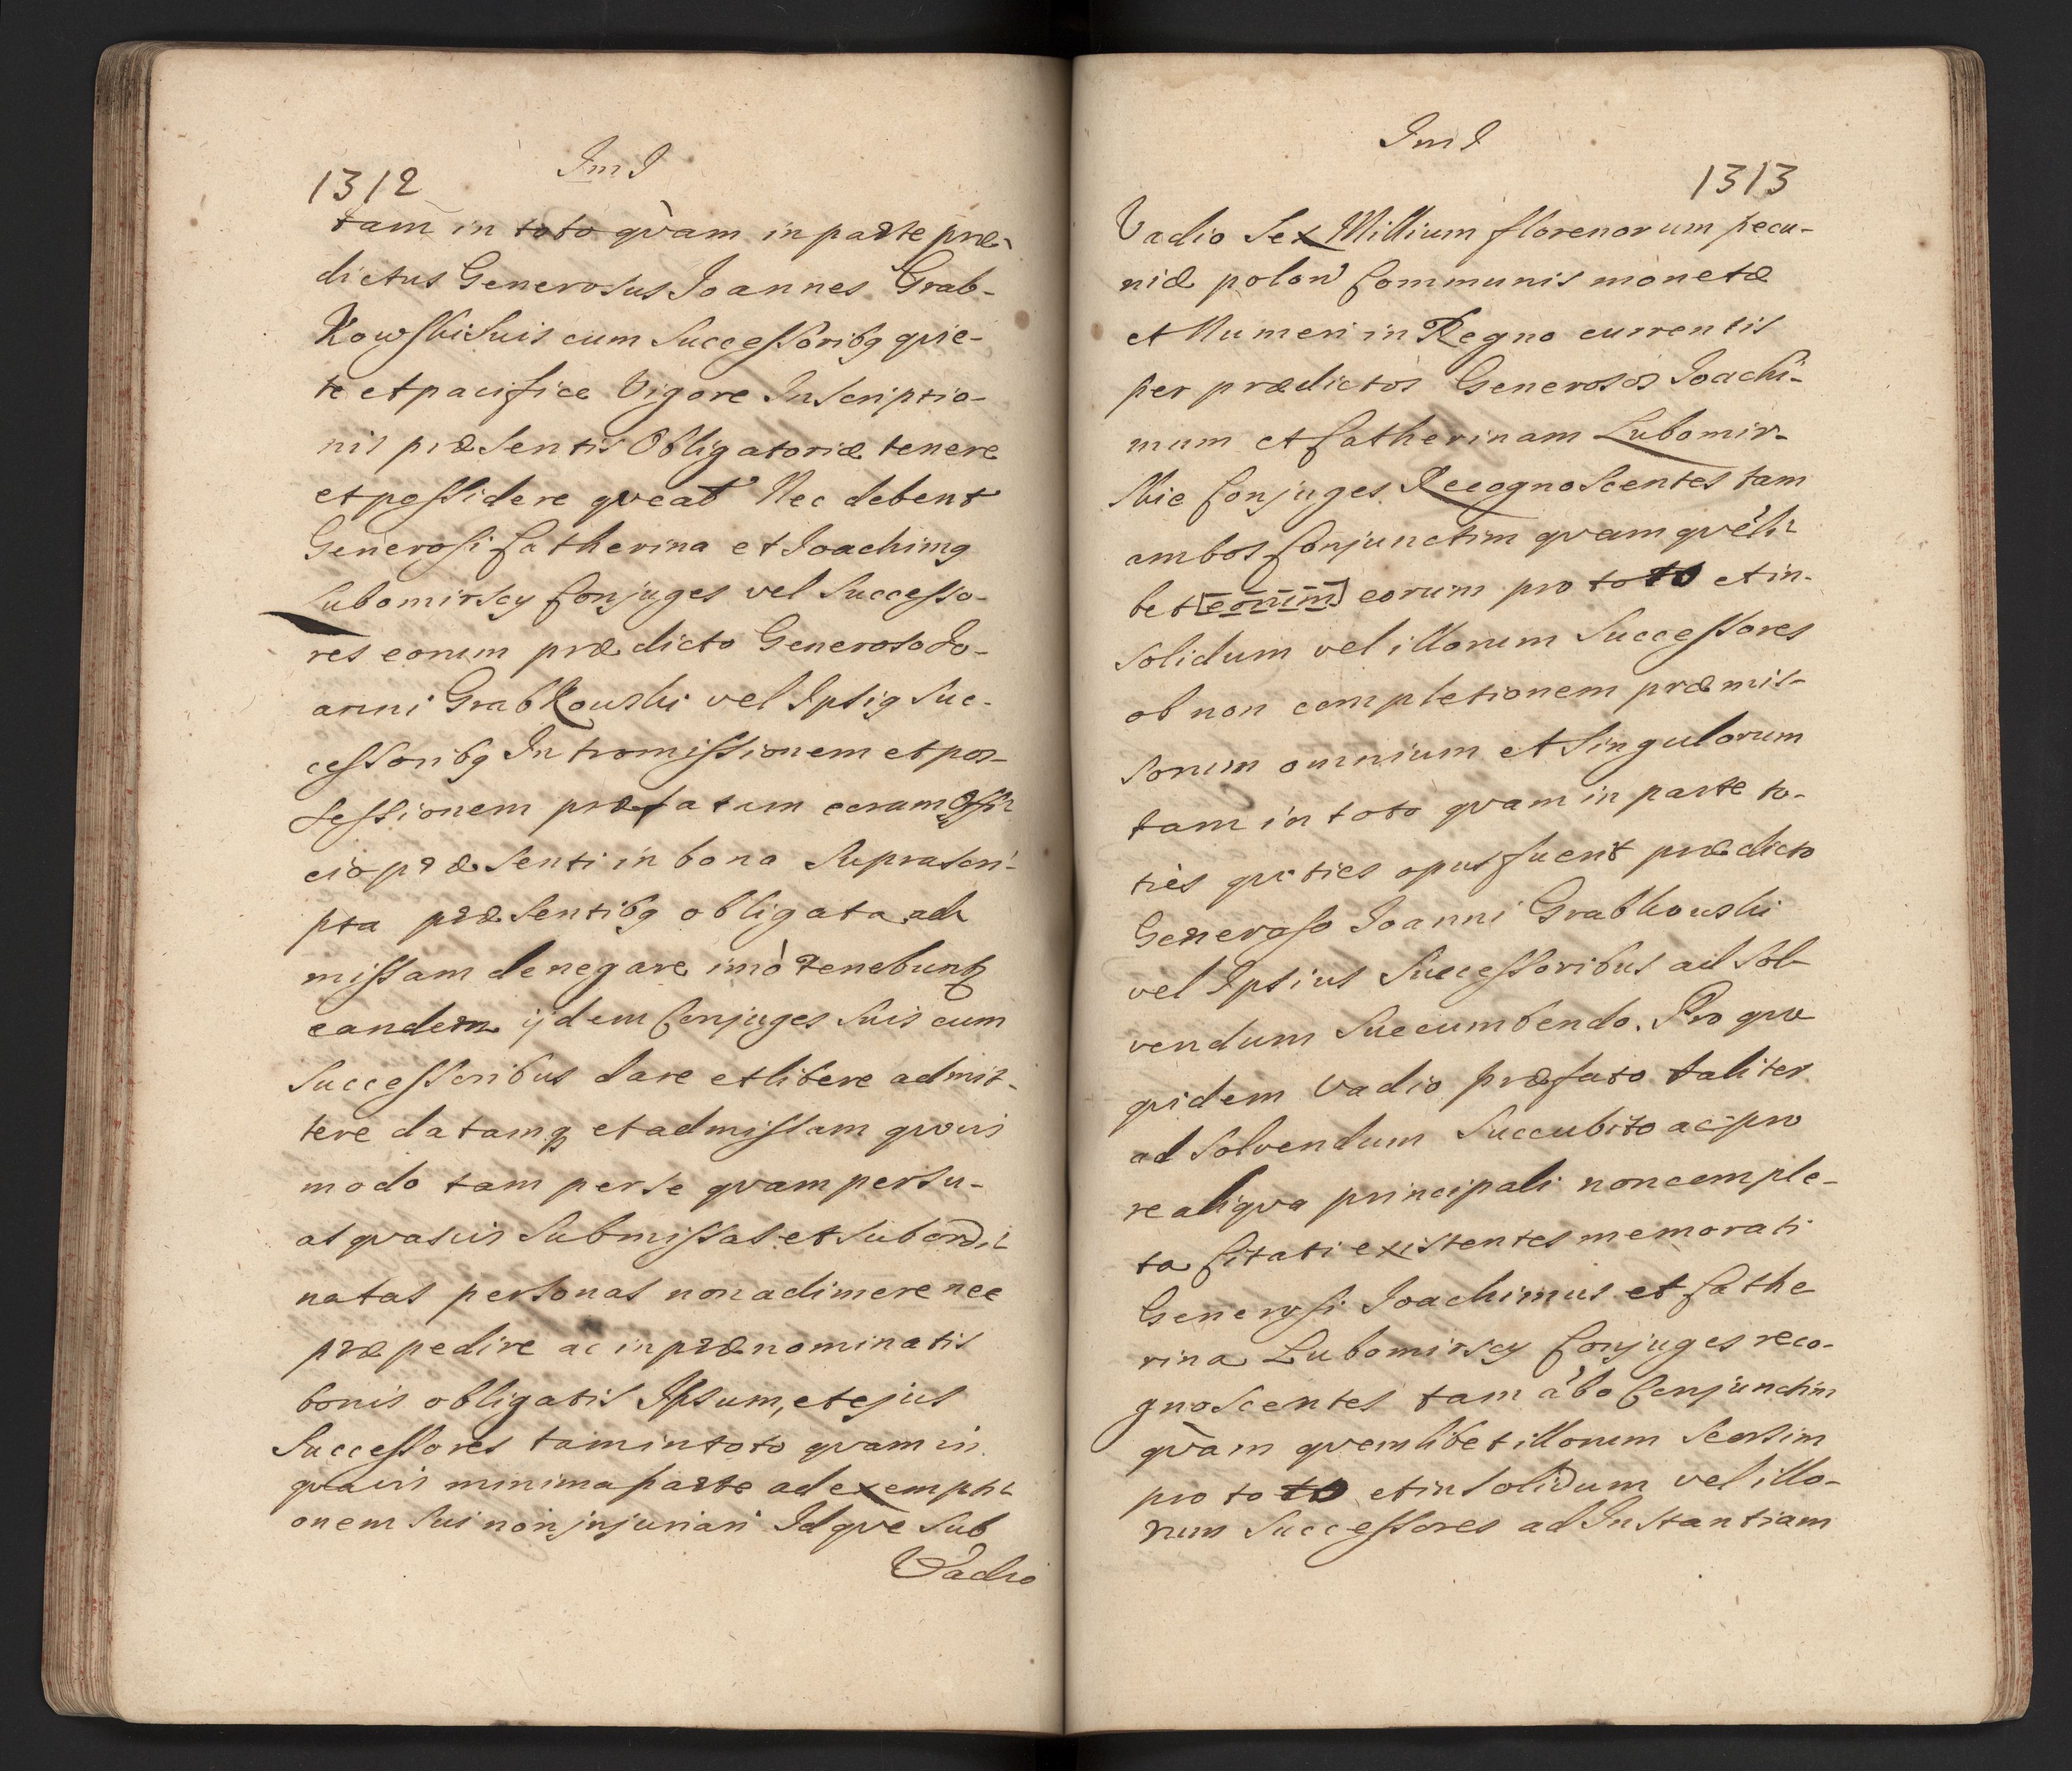 1312
Im I
tam in toto qvàm in parte præ-
dictus Generosus Joannes Grab-
Kowski suis cum Successoribg qvie-
te et pacifice Vigore Inscriptio-
nis præsentis Obligatoriæ tenere
et possidere qveat Nec debent
Generosi Catherina et Joachimg
Lubomirscy Conjuges vel Successo-
res eorum prædicto Generoso Jo-
anni GrabKowski vel Ipsig Suc-
cessoribg Intromissionem et pos-
sessionem præfatam coram Offi-
cio præsenti in bona Suprascri-
pta præsentibg obligata ad
missam denegare imò tenebunt
eandem ijdem Conjuges Suis cum
Successoribus dare et libere admit-
tere datamq et admissam qvovis
modo tam per se qvam per su-
as qvasvis Submissas et subordi-
natas personas non adimere nec
præpedire ac in prænominatis
bonis obligatis Ipsum, et ejus
Successores tam in toto qvam in
qvavis minima parte ad exempti-
onem sui non injuriari Idqve Sub
Vadio
Im I
1313
Vadio Sex Millium florenorum pecu-
niæ polon Communis monetæ
et Numeri in Regno currentis
per prædictos Generosos Joachi-
mum et Catherinam Lubomir-
skie Conjuges Recognoscentes tam
ambos Conjunctim qvam qvéli-
bet [eorum] eorum pro toto et in-
solidum vel illorum Successores
ob non completionem præmis-
sorum omnium et Singulorum
tam in toto qvam in parte to-
ties qvoties opus fuerit prædicto
Generoso Joanni Grabkowski
vel Ipsius Successoribus ad sol-
vendum Succumbendo. Pro qvo
qvidem Vadio præfato taliter
ad Solvendum Succubito ac pro
re aliqva principali non comple-
ta Citati existentes memorati
Generosi Joachimus et Cathe
rina Lubomirscy Conjuges reco-
gnoscentes tam ábo Conjunctim
qvàm qvemlibet illorum Seorsim
pro toto et in Solidum vel illo-
rum Successores ad Instantiam